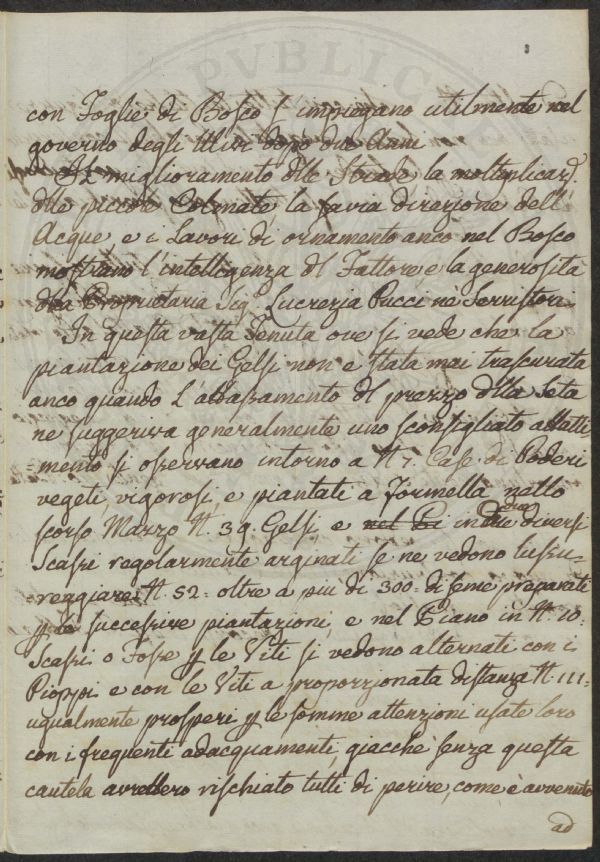 PVBLIC
3
con Foglie di Bosco s'impiegano utilmente nel
governo degli Ulivi dopo due Anni
Il miglioramento dlle Strade la moltiplicazᵉ.
dlle piccole Colmate la savia direzione dell'
Acque, e i Lavori di ornamento anco nel Bosco
mostrano l'intelligenza dl Fattore, e la generosità
dlla Proprietaria Sigʳᵃ Lucrezia Pucci né Serristori.
In questa vasta Tenuta ove si vede che la
piantazione dei Gelsi non è stata mai trascurata
anco quando l'abbassamento dl prezzo dlla Seta
ne suggeriva generalmente uno sconsigliato abbatti
=mento si osservano intorno a N. 7. Case di Poderi
vegeti, vigorosi, e piantati a formella nello
scorso Marzo N. 39. Gelsi, e nel Pi in due diversi
Scassi regolarmente arginati se ne vedono lussu-
=reggiare N. 52= oltre a più di 300= di seme preparati
p le successive piantazioni, e nel Piano in N. 10.
Scassi o Fosse p le Viti si vedono alternati con i
Pioppi e con le Viti a proporzionata distanza N. 111=
ugualmente prosperi p le somme attenzioni usate loro
con i frequenti adacquamenti, giacchè senza questa
cautela avrebbero rischiato tutti di perire, come è avvenuto
ad